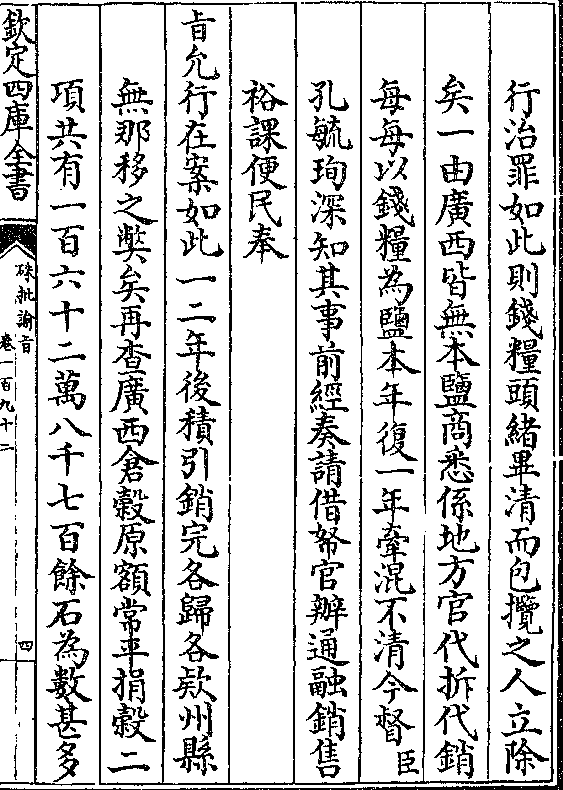 行治罪如此則錢糧頭緒畢清而包攬之人立除
矣一由廣西皆無本鹽商悉係地方官代拆代銷
每每以錢糧為鹽本年復一年牽混不清今督臣
孔毓珣深知其事前經奏請借帑官辦通融銷售
裕課便民奉
旨允行在案如此一二年後積引銷完各歸各欵州縣
無那移之獘矣再查廣西倉榖原額常平捐榖二
項共有一百六十二萬八千七百餘石為數甚多
欽定四庫全書
硃批諭旨
卷一百九十二
四